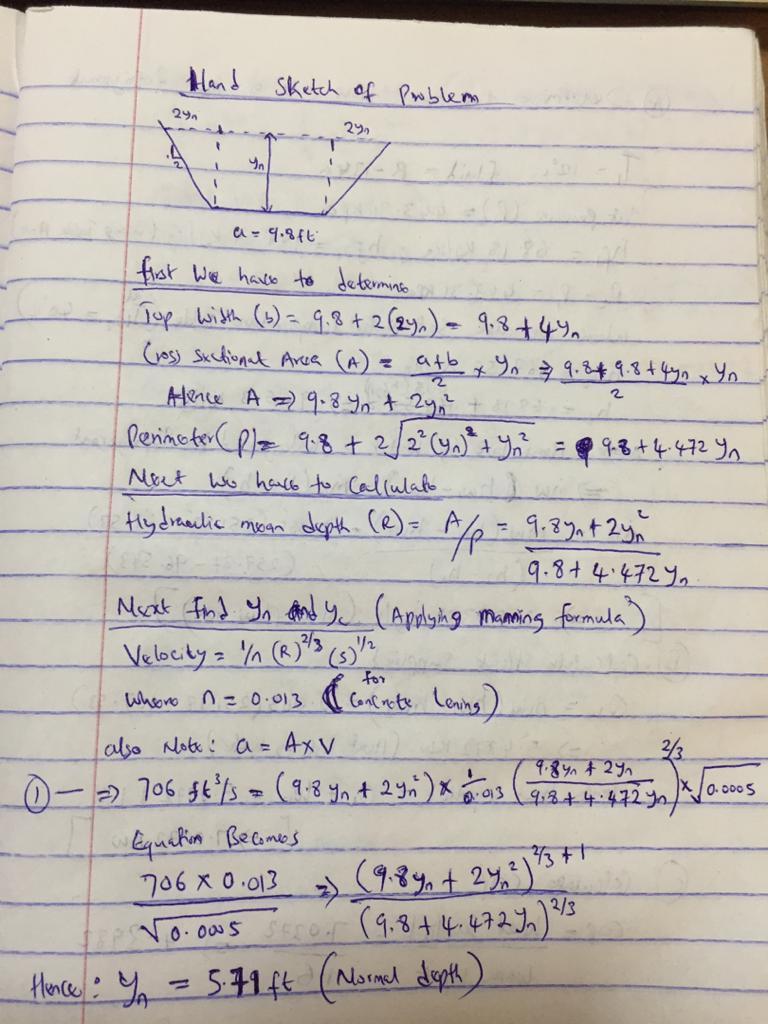 Hand Sketch of Problem
2yn 2yn
1 yn
2
a = 9.8ft
first We have to determine
Top Width (b) = 9.8 + 2(2yn) = 9.8 + 4yn
Cross Sectional Area (A) = a+b/2 × yn ⇒ 9.8 + 9.8 + 4yn/2 × yn
Hence A ⇒ 9.8yn + 2yn²
Perimeter (P) = 9.8 + 2√2²(yn)² + yn² = 9.8 + 4.472 yn
Next we have to Calculate
Hydraulic mean depth (R) = A/P = 9.8yn + 2yn²/9.8 + 4.472yn
Next find yn and yc (Applying manning formula)
Velocity = 1/n (R)^2/3 (s)^1/2
where n = 0.013 (for Concrete Lening)
also Note: Q = A×V
① — ⇒ 706 ft³/s = (9.8yn + 2yn²) × 1/0.013 (9.8yn + 2yn/9.8 + 4.472yn)^2/3 × √0.0005
Equation Becomes
706 × 0.013/√0.0005 ⇒ (9.8yn + 2yn²)^2/3+1/(9.8 + 4.472yn)^2/3
Hence: yn = 5.71 ft (Normal depth)